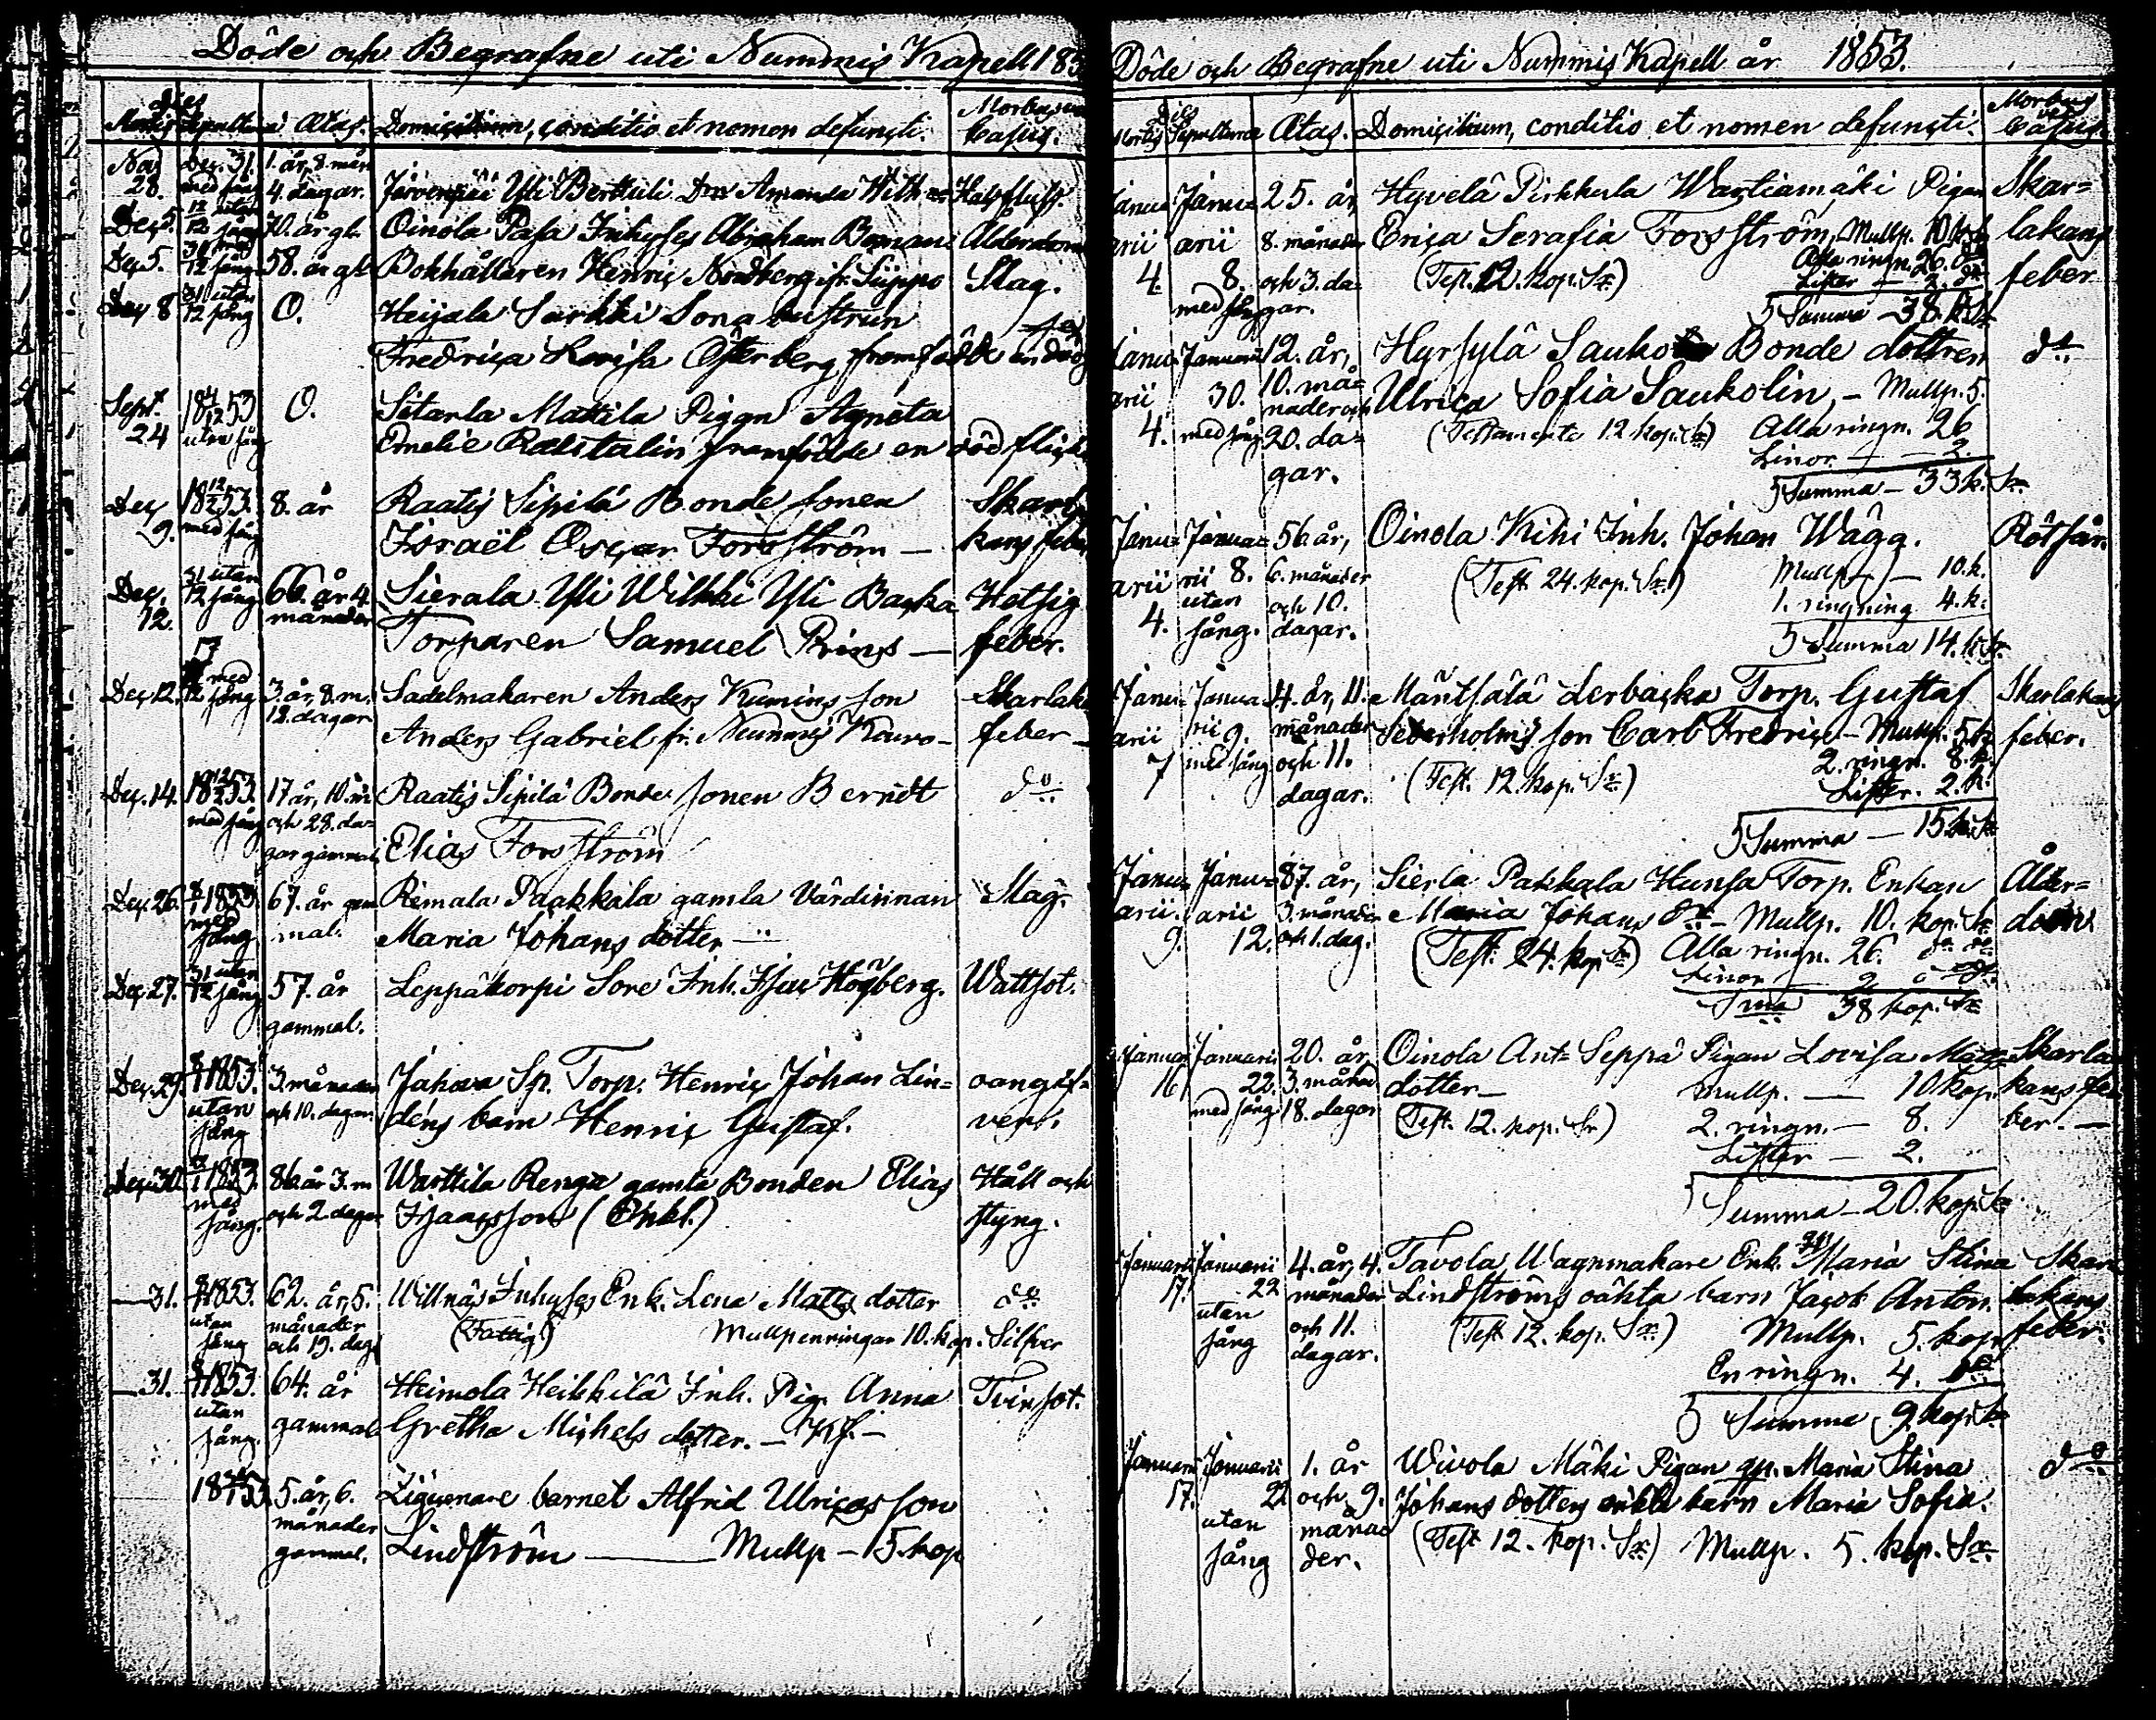 Döde och Begrafne uti Nummis Kapell 185
Dies
Mortis Sepulturæ Ætas. Domicilium, conditio et nomen defuncti. Morbus
Casus.
Nov. 28. Dec. 31. med sång 1. år, 8. mån 4. dagar. Yli Berttuli Amanda Halsfluss.
Dec. 5. 12/12 utan sång 70. år gl. Oinola Pasa Inhyses Abraham Ålderdom
Dec. 5. 31/12 med sång 58. år gl. Bokhållaren Henric Nordberg fr. Siippo Slag.
Dec. 8 31/12 utan sång 0. Heijala Sarkki Sona hustrun
Fredrica Lovisa Österberg framfödde en död
Sept. 24 1853 utan sång 0. Sitarla Mattila Pigan Agneta
Emelie framfödde en död flicka
Dec. 9. 1853. med sång 8. år Raatis Sipilä Bonde sonen Skarla
Israël Oscar Forsström — kans feber
Dec. 12. 31/12 utan sång 66. år 4 månader Sierala Yli Wilkki Yli Backa Hetsig
Torparen Samuel Prins — feber.
Dec. 12. med sång 3. år, 8. m. 12. dagar Sadelmakaren Anders Kumins son Skarlak
Anders Gabriel fr. Nummis Kouvo — feber —
Dec. 14. 1853. med sång 17 år, 10. m och 28. da=
gar gammal Raatis Sipilä Bonde sonen Berndt do
Elias Forsström
Dec. 26. 1853. med sång 67. år gam
mal. Remala Paakkala gamla Värdinnan Slag.
Maria Johans dotter —
Dec. 27. 31/12 utan sång 57. år gammal. Leppäkorpi Sore Inh. Högberg. Wattsot.
Dec. 29. 1853. utan sång 3. månader och 10. dagar. Jahova Sp. Torp. Henric Johan Lin= oangif=
dens barn Henric Gustaf. ven.
Dec. 30. 1853. med sång. 86 år 3. m och 2 dagar Warttila Renga gamla Bonden Elias Håll och
Isaacsson (Enkl.) styng.
— 31. 1853. utan sång 62. år, 5. månader och 19. dag. Willnäs Inhyses Enk. Lena Matts dotter do
(Fattig) Mullpenningar 10. kop. Silfver
— 31. 1853. utan sång. 64. år gammal Heimola Heikkilä Inh. Pig. Anna Tvinsot.
Gretha Michels dotter. —
1853 5. år, 6. månader gammal. Ziguenare barnet Alfrid Ulricas son
Lindström — Mullp — 15. kop
Döde och Begrafne uti Nummis Kapell år 1853.
Dies
Mortis Sepulturæ Ætas. Domicilium, conditio et nomen defuncti. Morbus vel
Casus.
Janu=
arii
4. Janu=
arii
8.
med sång 25. år,
8. månader
och 3. da=
gar. Hyvelä Pirkkula Wartiamäki Pigan Skar=
Erica Serafia Forsström, Mullp. 10. lakans
(Test. 12. kop. Sr.) Alla ringn. 26. do feber
Lister — 2. do
Summa — 38. k. Sr
Janu=
arii
4. Januarii
30.
med sång 12. år,
10. må=
nader och
20. da=
gar. Hyrsylä Sauko Bonde dottren do
Ulrica Sofia Saukolin, — Mullp. 5.
(Testamente 12 kop. Sr) Alla ringn. 26
Linor — 2.
Summa — 33 k. Sr.
Janu=
arii
4. Janua=
rii 8.
utan
sång. 56 år,
6. månader
och 10.
dagar. Oinola Kihi Inh. Johan Wågg. Rötsår.
(Test. 24. kop. Sr.) Mullp. — 10. k.
1. ringning 4. k.
Summa 14. k. Sr.
Janu=
arii
7 Janua=
rii 9.
med sång 4. år, 11.
månader
och 11.
dagar. Mäntsälä Lerbacka Torp. Gustaf Skarlakans
Sederholms son Carl Fredric — Mullp. 5 k feber.
2. ringn. 8. k.
(Test. 12. kop. Sr.) Lister. 2. k.
Summa — 15 k. Sr
Janu=
arii.
9. Janu=
arii
12. 87. år,
3. månader
och 1. dag. Sierla Pakkala Hunsa Torp. Enkan Ålder=
Maria Johans dr. — Mullp. 10. kop. Sr. dom.
(Test. 24. kop Sr) Alla ringn. 26. do do
Linor — 2
Sma 38 kop. Sr
Januarii
16 Januarii
22.
med sång 20. år,
3. månad
18. dagar Oinola Ant= Seppä Pigan Lovisa Matts Skarla
dotter — Mullp. — 10. kop. kans fe
(Test. 12. kop. Sr.) 2. ringn. — 8. ber. —
Lister — 2.
Summa — 20. kop. Sr
Januarii
17. Januarii
22
utan
sång 4. år, 4.
månader
och 11.
dagar. Tavola Wagnmakare Enk. Maria Stina Skar
Lindströms oäkta barn Jacob Anton. lakans
(Test 12. kop. Sr.) Mullp. 5. kop. feber.
En ringn. 4. do
Summa 9. kop. Sr
Januarii
17. Januarii
22
utan
sång 1. år
och 9.
måna=
der. Wivola Mäki Pigan gp. Maria Stina do
Johans dotters oäkta barn Maria Sofia.
(Test 12. kop. Sr.) Mullp. 5. kop. Sr.